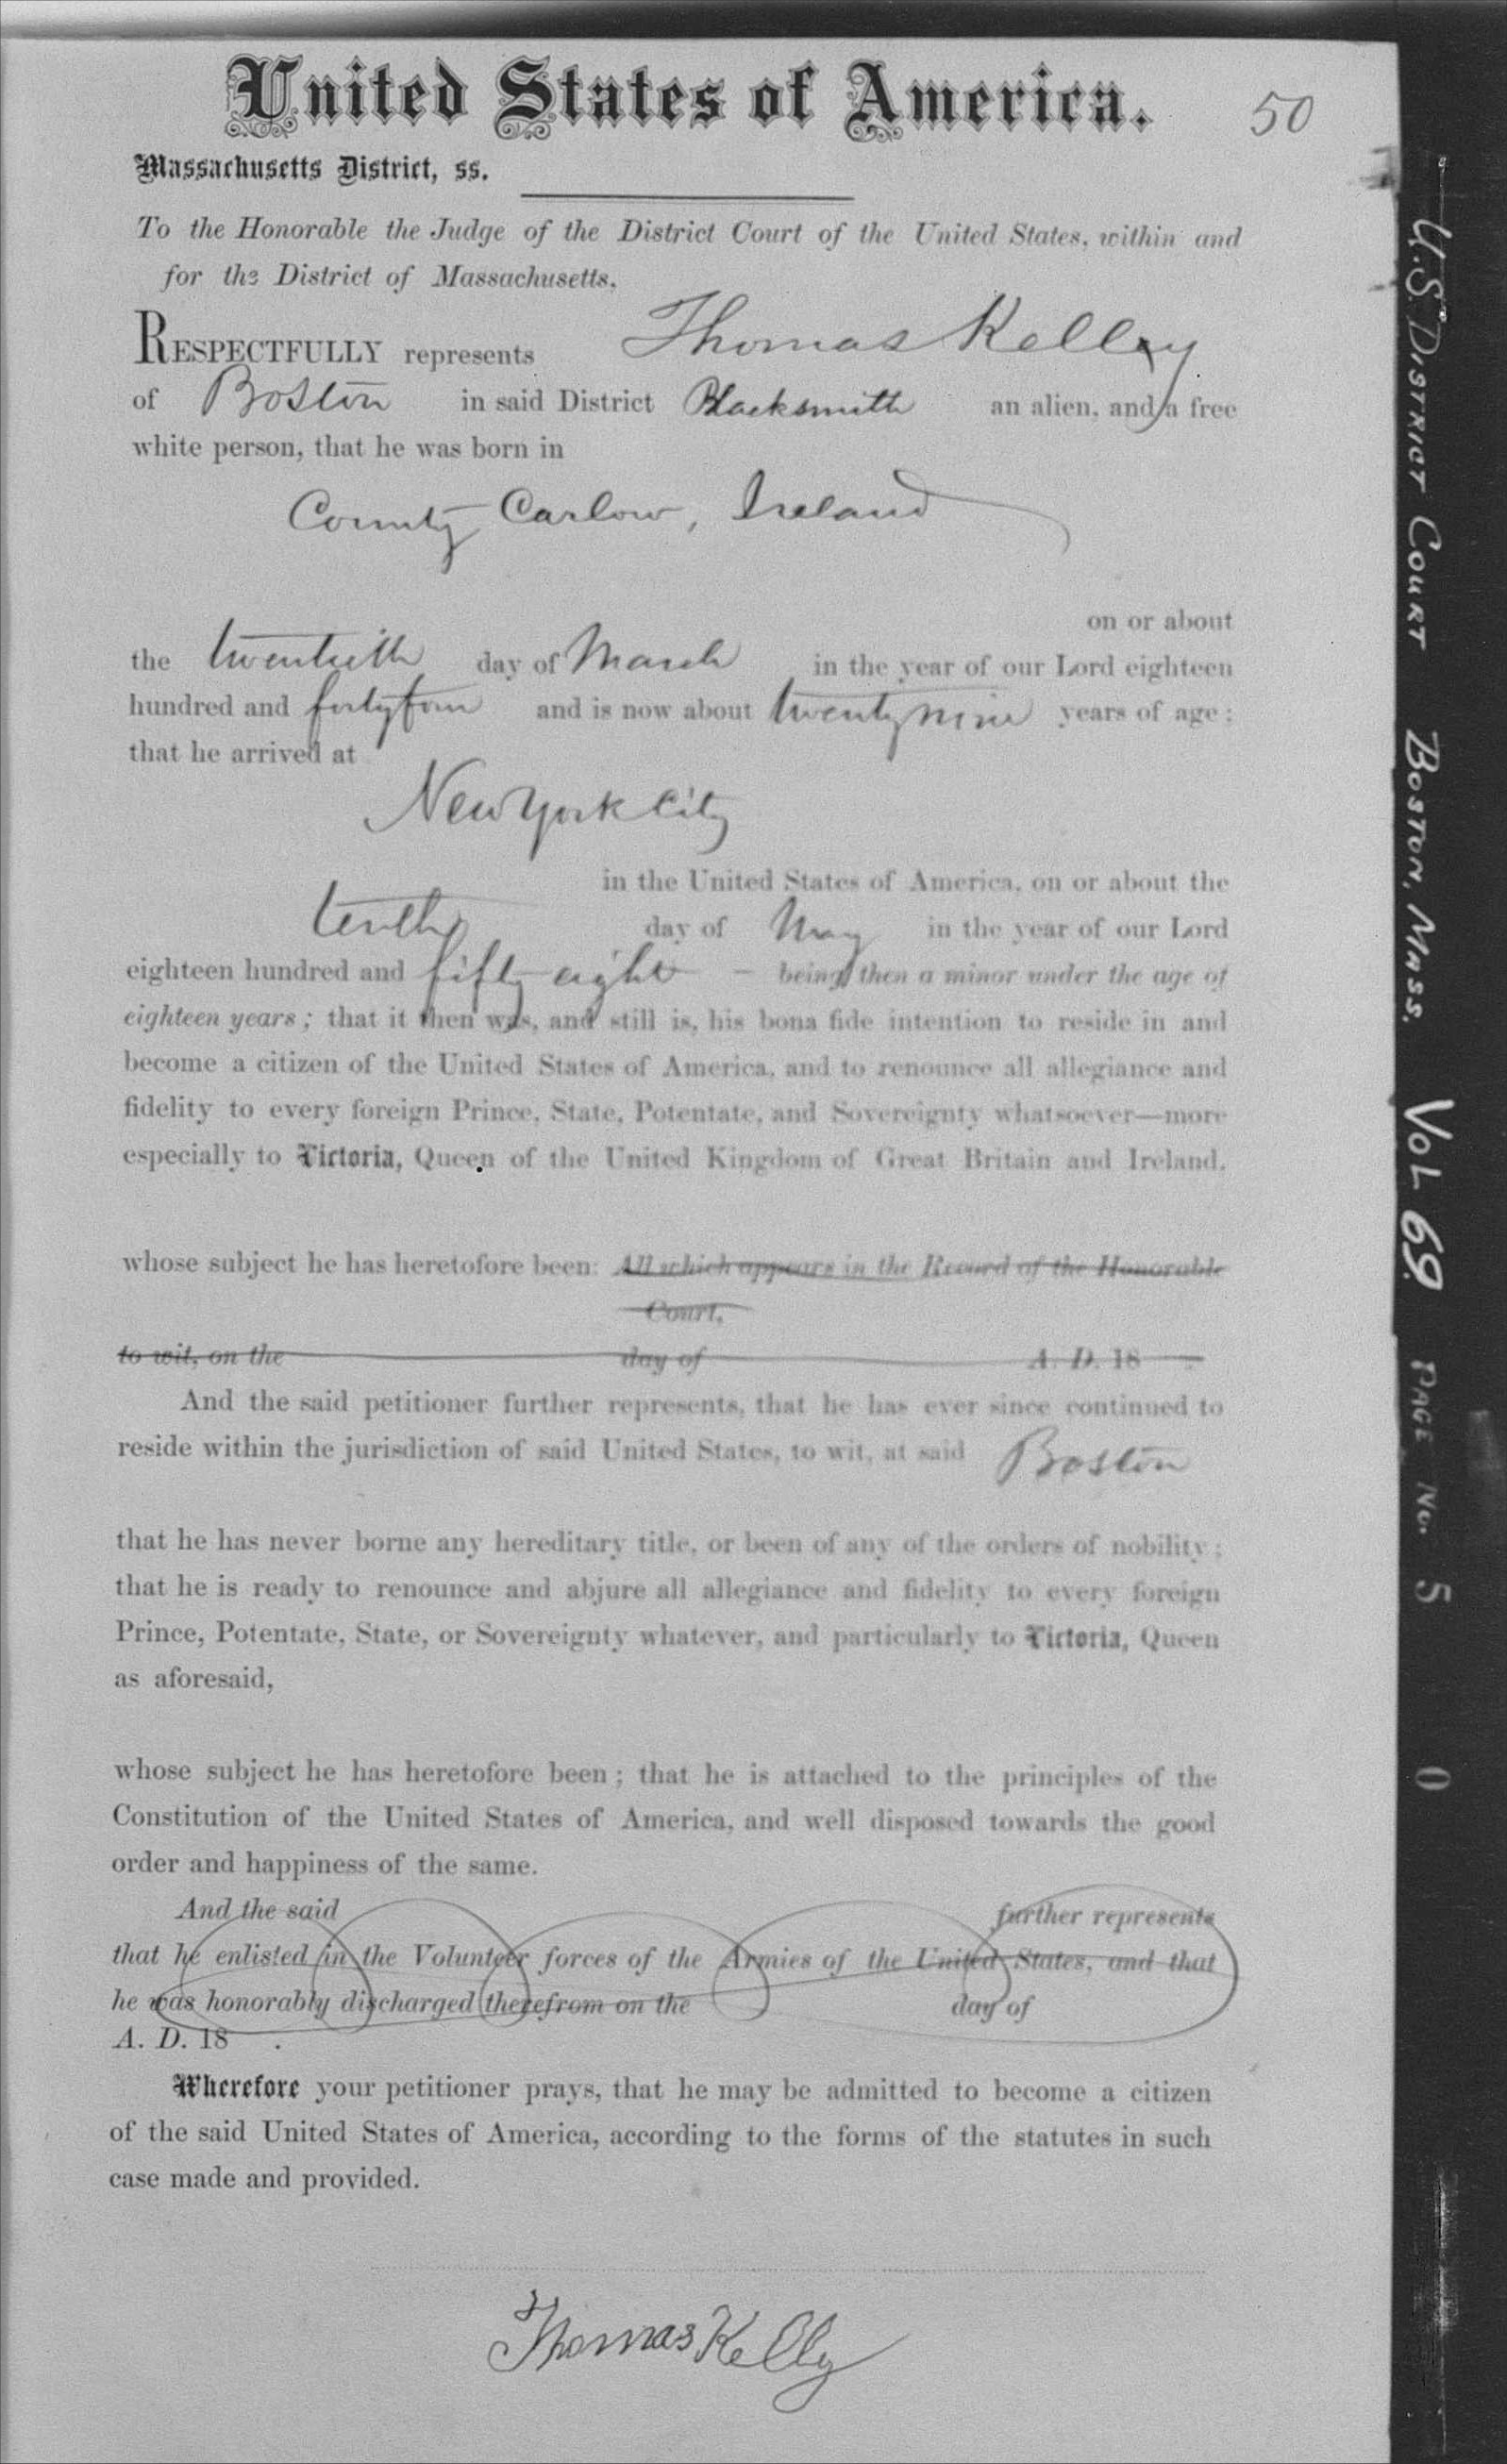 United States of America.
50
Massachusetts District, ss.
To the Honorable the Judge of the District Court of the United States, within and
for the District of Massachusetts.
RESPECTFULLY represents Thomas Kelley
of Boston in said District Blacksmith an alien, and a free
white person, that he was born in
County Carlow, Ireland
on or about
the twentieth day of March in the year of our Lord eighteen
hundred and forty four and is now about twenty nine years of age;
that he arrived at
New York City
in the United States of America, on or about the
tenth day of May in the year of our Lord
eighteen hundred and fifty eight — being then a minor under the age of
eighteen years; that it then was, and still is, his bona fide intention to reside in and
become a citizen of the United States of America, and to renounce all allegiance and
fidelity to every foreign Prince, State, Potentate, and Sovereignty whatsoever—more
especially to Victoria, Queen of the United Kingdom of Great Britain and Ireland,
whose subject he has heretofore been: All which appears in the Record of the Honorable
Court,
to wit, on the day of A. D. 18 .
And the said petitioner further represents, that he has ever since continued to
reside within the jurisdiction of said United States, to wit, at said Boston
that he has never borne any hereditary title, or been of any of the orders of nobility;
that he is ready to renounce and abjure all allegiance and fidelity to every foreign
Prince, Potentate, State, or Sovereignty whatever, and particularly to Victoria, Queen
as aforesaid,
whose subject he has heretofore been; that he is attached to the principles of the
Constitution of the United States of America, and well disposed towards the good
order and happiness of the same.
And the said further represents
that he enlisted in the Volunteer forces of the Armies of the United States, and that
he was honorably discharged therefrom on the day of
A. D. 18 .
Wherefore your petitioner prays, that he may be admitted to become a citizen
of the said United States of America, according to the forms of the statutes in such
case made and provided.
Thomas Kelly
U.S. DISTRICT COURT BOSTON, MASS. VOL 69. PAGE No. 5 0